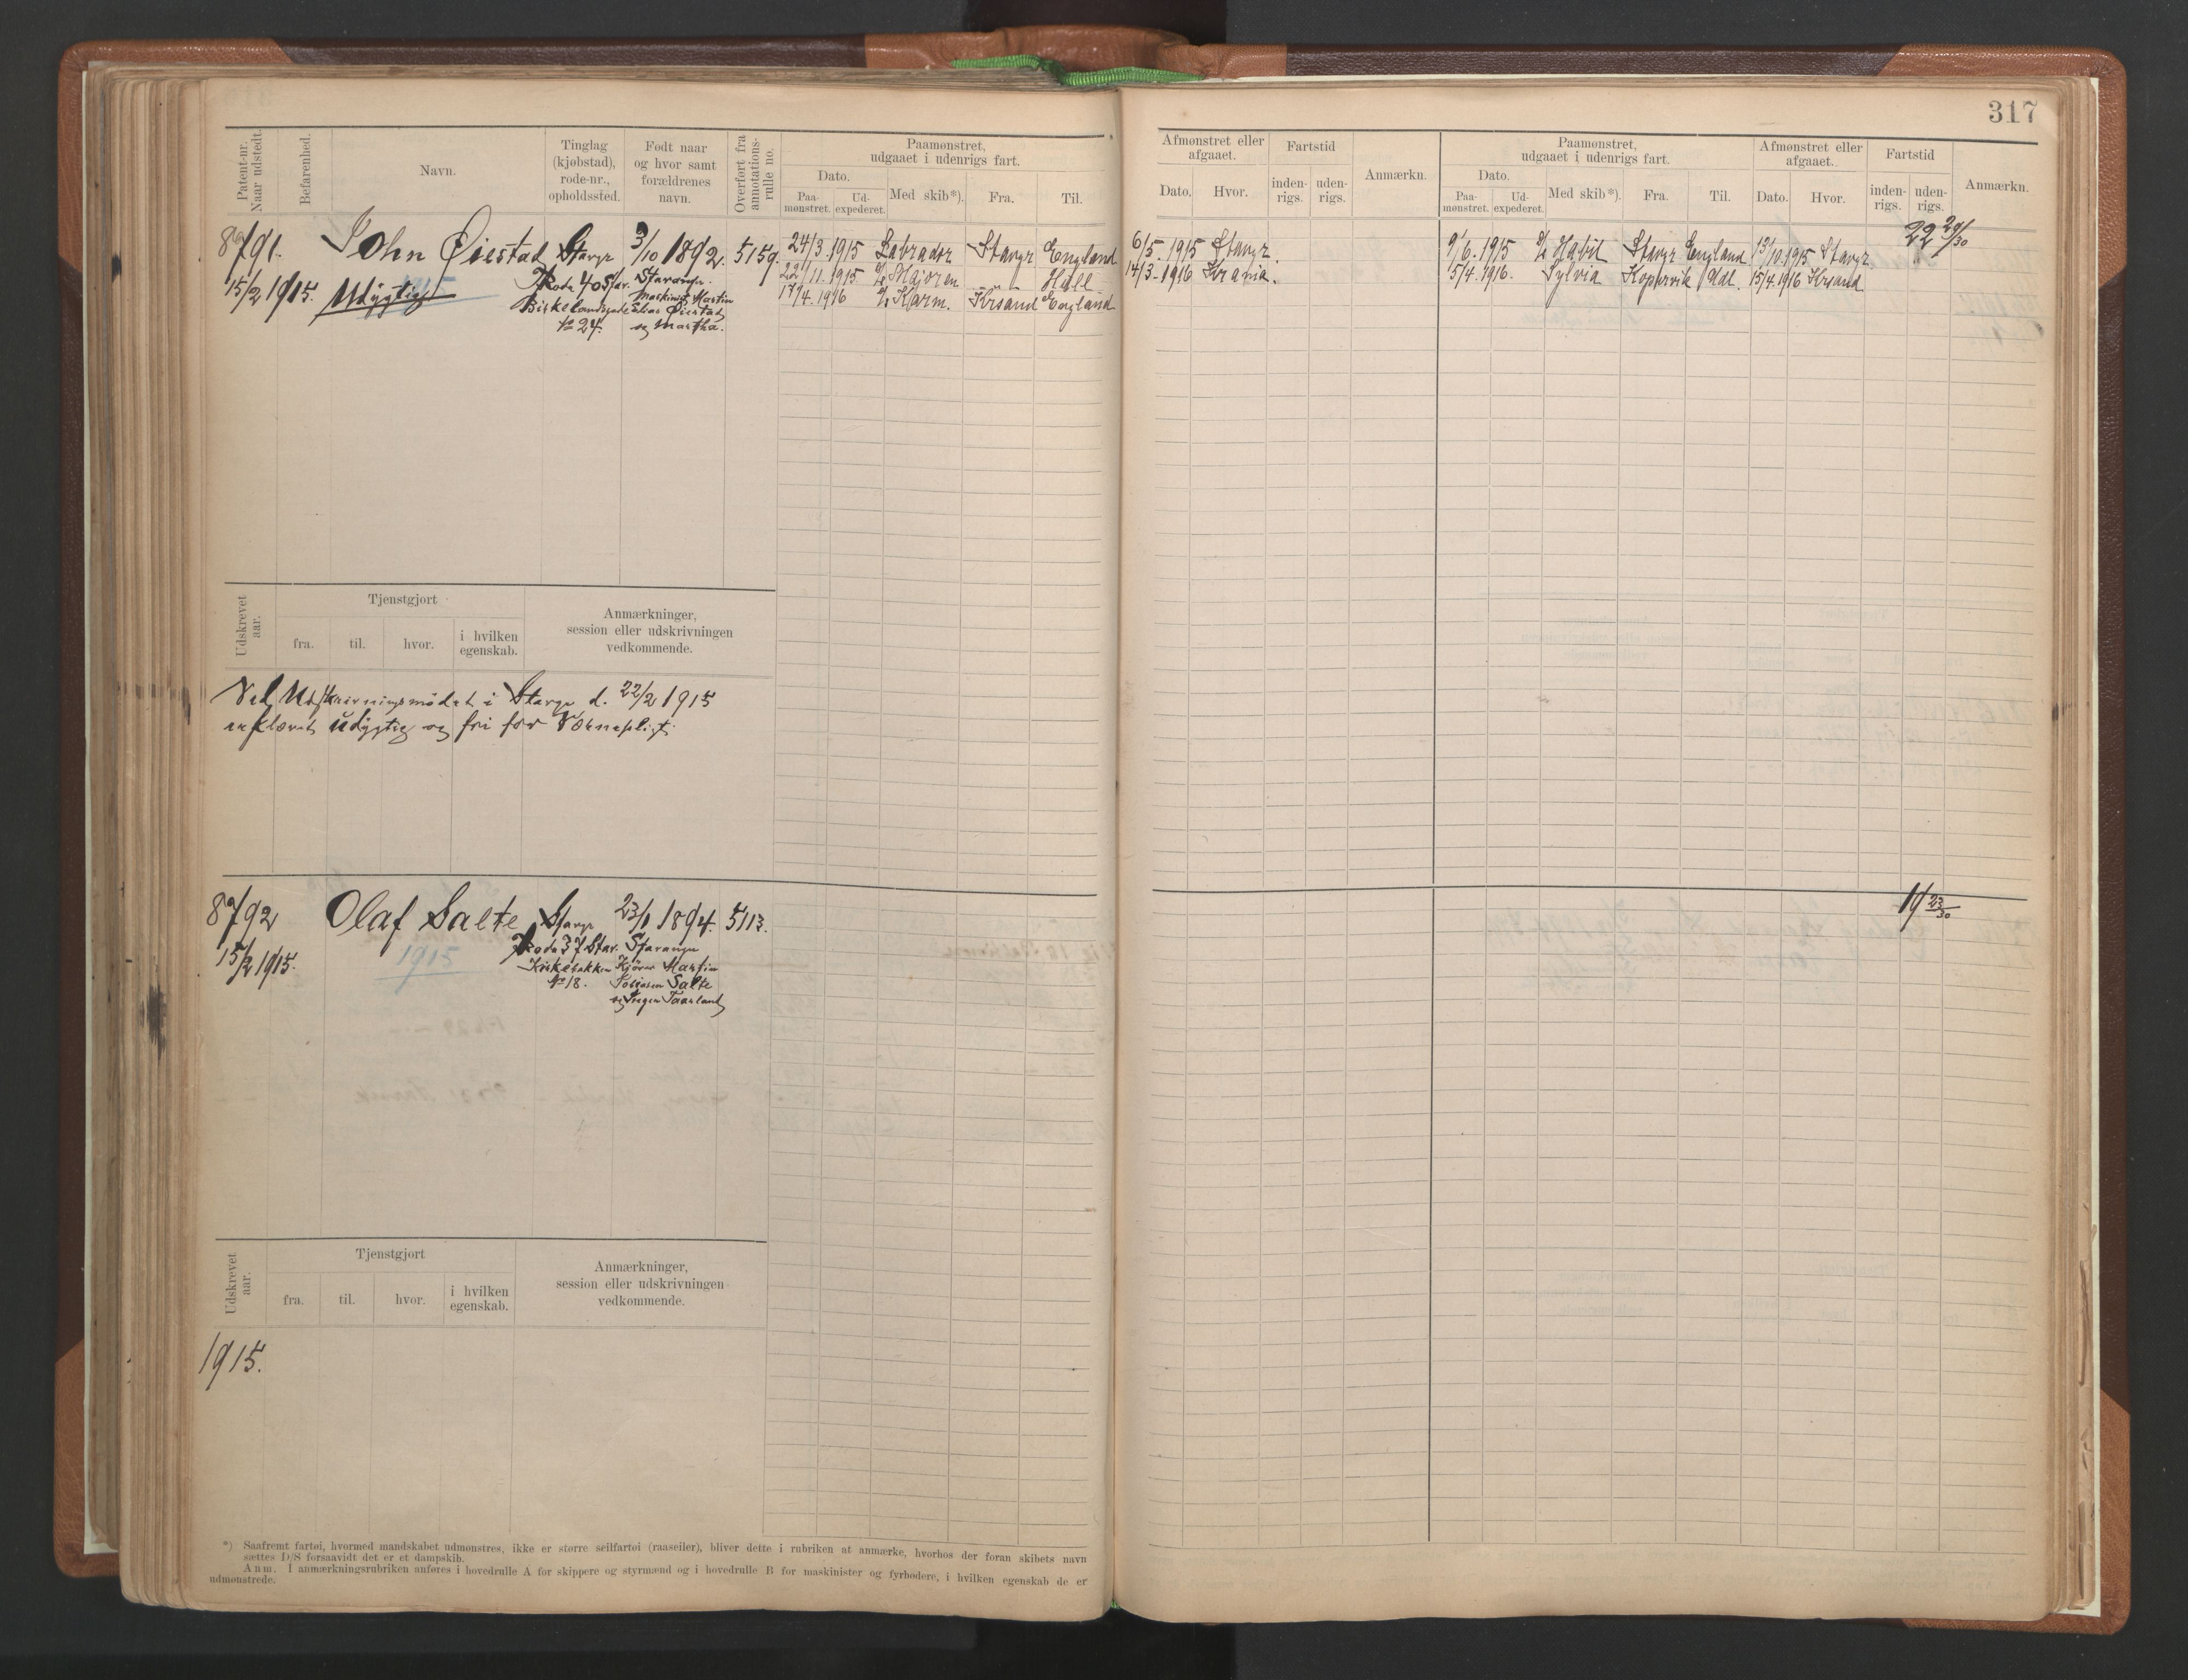 317
Patent-nr. Naar udstedt.
Befarenhed.
Navn.
Tinglag (kjøbstad), rode-nr., opholdssted.
Født naar og hvor samt forældrenes navn.
Overført fra annotations-rulle no.
Paamønstret, udgaaet i udenrigs fart.
Dato.
Paa-mønstret.
Ud-expederet.
Med skib*).
Fra.
Til.
Afmønstret eller afgaaet.
Dato.
Hvor.
Fartstid
inden-rigs.
uden-rigs.
Anmærkn.
Paamønstret, udgaaet i udenrigs fart.
Dato.
Paa-mønstret.
Ud-expederet.
Med skib*).
Fra.
Til.
Afmønstret eller afgaaet.
Dato.
Hvor.
Fartstid
inden-rigs.
uden-rigs.
Anmærkn.
8791. John Øiestad Stavgr 3/10 1892. 5159.
15/2 1915. Udygtig
Rode 40 Stav. Stavanger
Birkelandsgade Maskinist Martin
No 24. Elias Øiestad
og Martha.
24/3.1915 Labrador Stavgr England 6/5.1915 Stavgr. 9/6.1915 Stavgr England 13/10.1915 Stavgr 22 29/30
22/11.1915 Majoren " Hull 14/3.1916 Kr ania. 15/4.1916. Sylvia Kopervik 15/4.1916 Krsand
17/4.1916 Karm. Krsand England
Udskrevet aar.
Tjenstgjort
fra.
til.
hvor.
i hvilken egenskab.
Anmærkninger,
session eller udskrivningen
vedkommende.
Ved Udskrivningsmødet i Stavgr d. 22/2 1915
erklæret udygtig og fri for Værnepligt.
8792 Olaf Salte Stavgr 23/1 1894. 5113. 19 23/30
15/2 1915. 1915 Rode 37 Stav. Stavanger
Kirkebakken Kjører Martin
No 18. Tobiasen Salte
og Inger Taarland
Udskrevet aar.
Tjenstgjort
fra.
til.
hvor.
i hvilken egenskab.
Anmærkninger,
session eller udskrivningen
vedkommende.
1915.
*) Saafremt fartøi, hvormed mandskabet udmønstres, ikke er større seilfartøi (raaseiler), bliver dette i rubriken at anmærke, hvorhos der foran skibets navn
sættes D/S forsaavidt det er et dampskib.
Anm. I anmærkningsrubriken anføres i hovedrulle A for skippere og styrmænd og i hovedrulle B for maskinister og fyrbødere, i hvilken egenskab de er
udmønstrede.